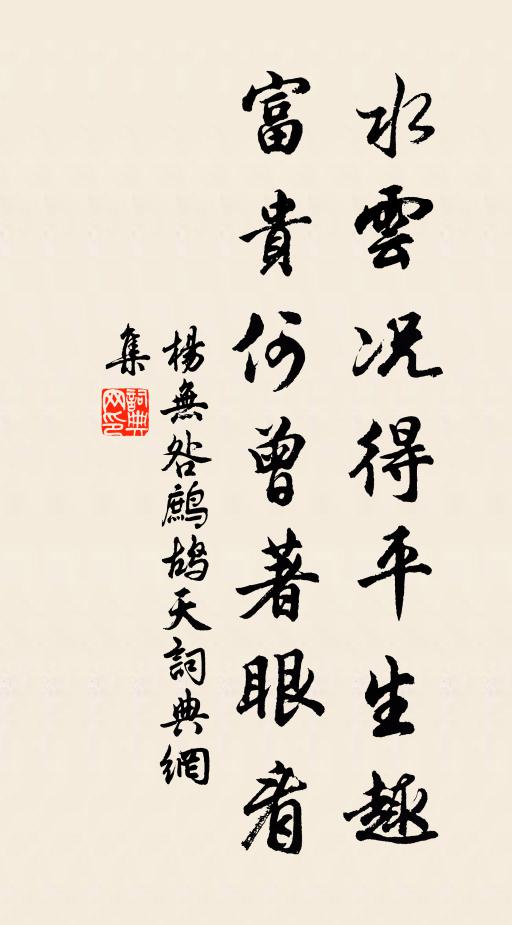 水雲況得平生趣
富貴何曾著眼看
楊無咎鷓鴣天詞典網
集
詞典
网印